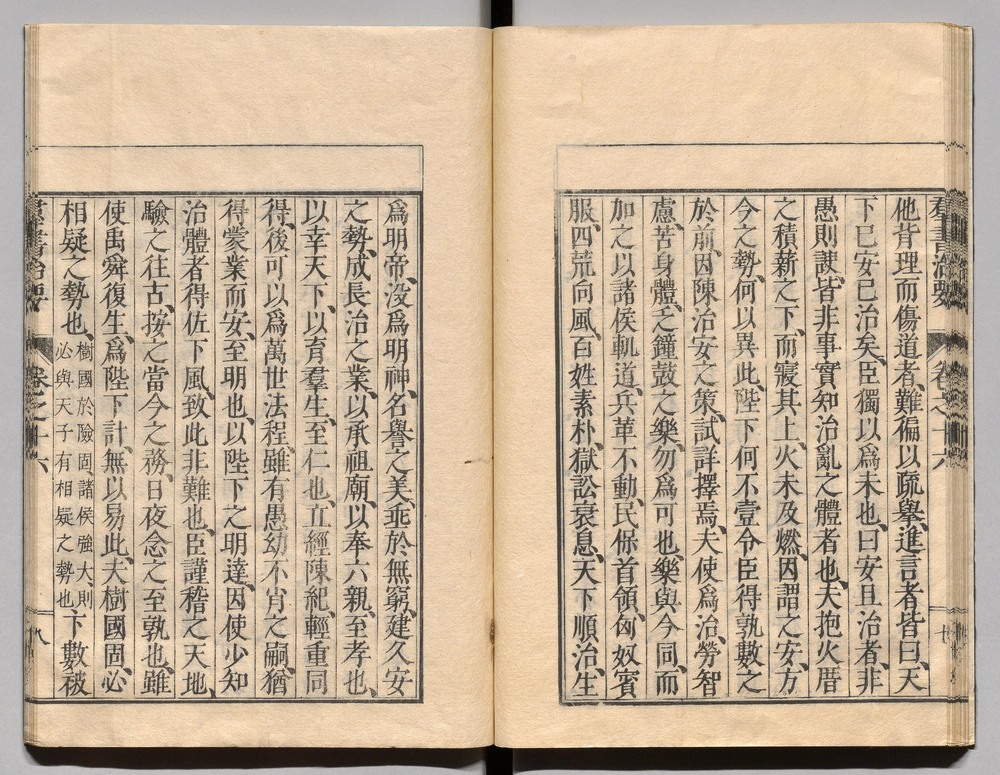 羣書治要 卷之十六
他背理而傷道者、難徧以疏擧、進言者皆曰、天
下已安已治矣、臣獨以爲未也、曰安且治者、非
愚則諛、皆非事實知治亂之體者也、夫抱火厝
之積薪之下、而寢其上、火未及燃、因謂之安、方
今之勢、何以異此、陛下何不壹令臣得孰數之
於前、因陳治安之策、試詳擇焉、夫使爲治、勞智
慮、苦身體、乏鐘鼓之樂、勿爲可也、樂與今同、而
加之以諸侯軌道、兵革不動、民保首領、匈奴賓
服、四荒向風、百姓素朴、獄訟衰息、天下順治、生
爲明帝、沒爲明神、名譽之美、垂於無窮、建久安
之勢、成長治之業、以承祖廟、以奉六親、至孝也、
以幸天下、以育羣生、至仁也、立經陳紀、輕重同
得、後可以爲萬世法程、雖有愚幼不肖之嗣、猶
得蒙業而安、至明也、以陛下之明達、因使少知
治體者得佐下風、致此非難也、臣謹稽之天地、
驗之往古、按之當今之務、日夜念之至孰也、雖
使禹舜復生、爲陛下計、無以易此、夫樹國固、必
相疑之勢也、樹國於險固、諸侯強大、則必與天子有相疑之勢也、下數被
羣書治要 卷之十六 八